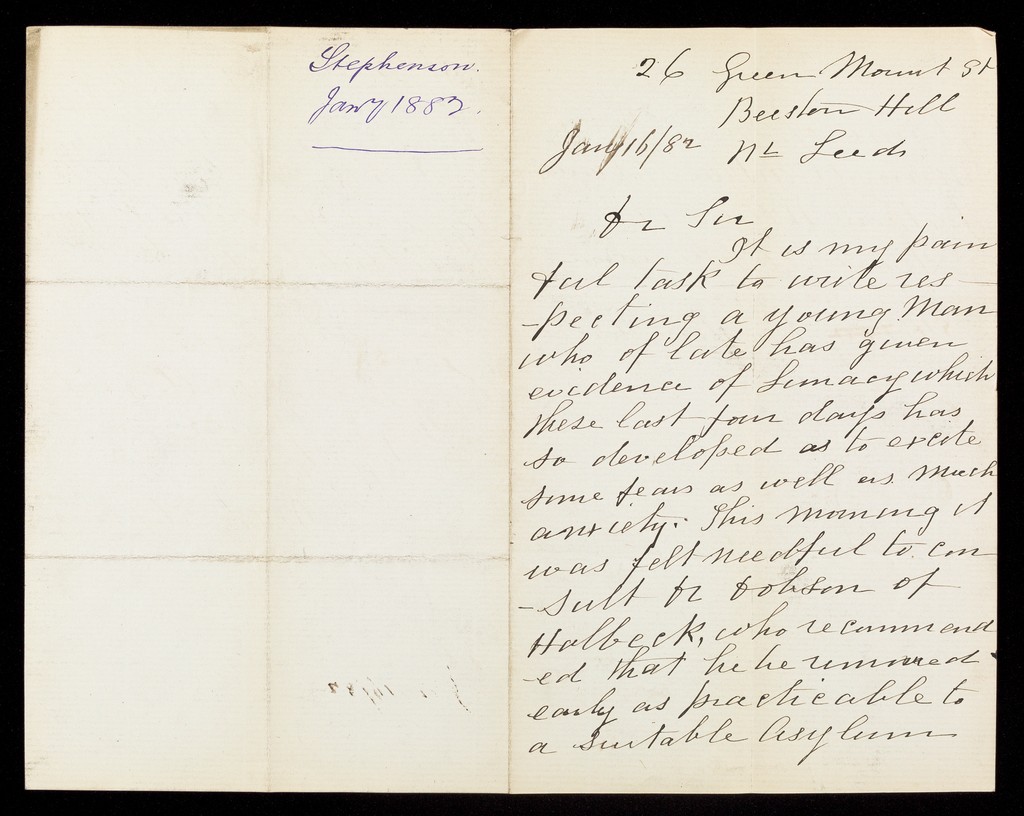 Stephenson.
Jany 1882.
26 Green Mount St
Beeston Hill
Jany 16/82 Nr Leeds
Dr Sir
It is my pain
ful task to write res
-pecting a young Man
who of late has given
evidence of Lunacy which
these last four days has
so developed as to excite
some fears as well as much
anxiety. This morning it
was felt needful to con
-sult Dr Dobson of
Holbeck, who recommend
ed that he be removed
early as practicable to
a suitable Asylum